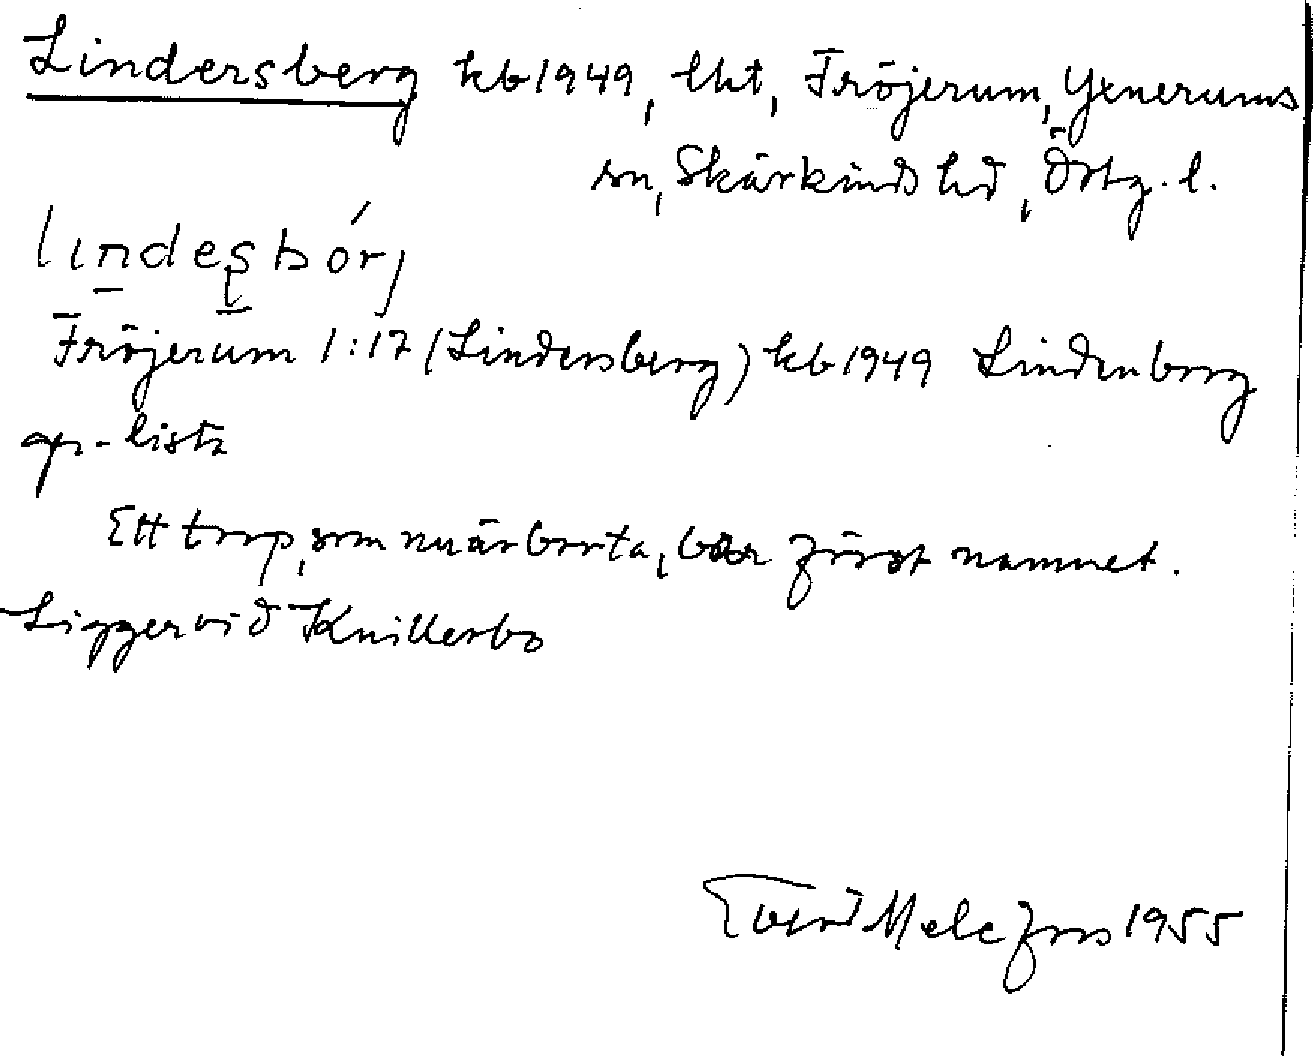 Lindersberg kb 1949, lht, Fröjerum, Yxnerums
sn, Skärkinds hd, Östg. l.
lindesbórj
Fröjerum 1:17 (Lindersberg) kb 1949 Lindenborg
gr-lista
Ett torp, som nu är borta, bar först namnet.
Ligger vid Knillerbo
Evert Melefors 1955